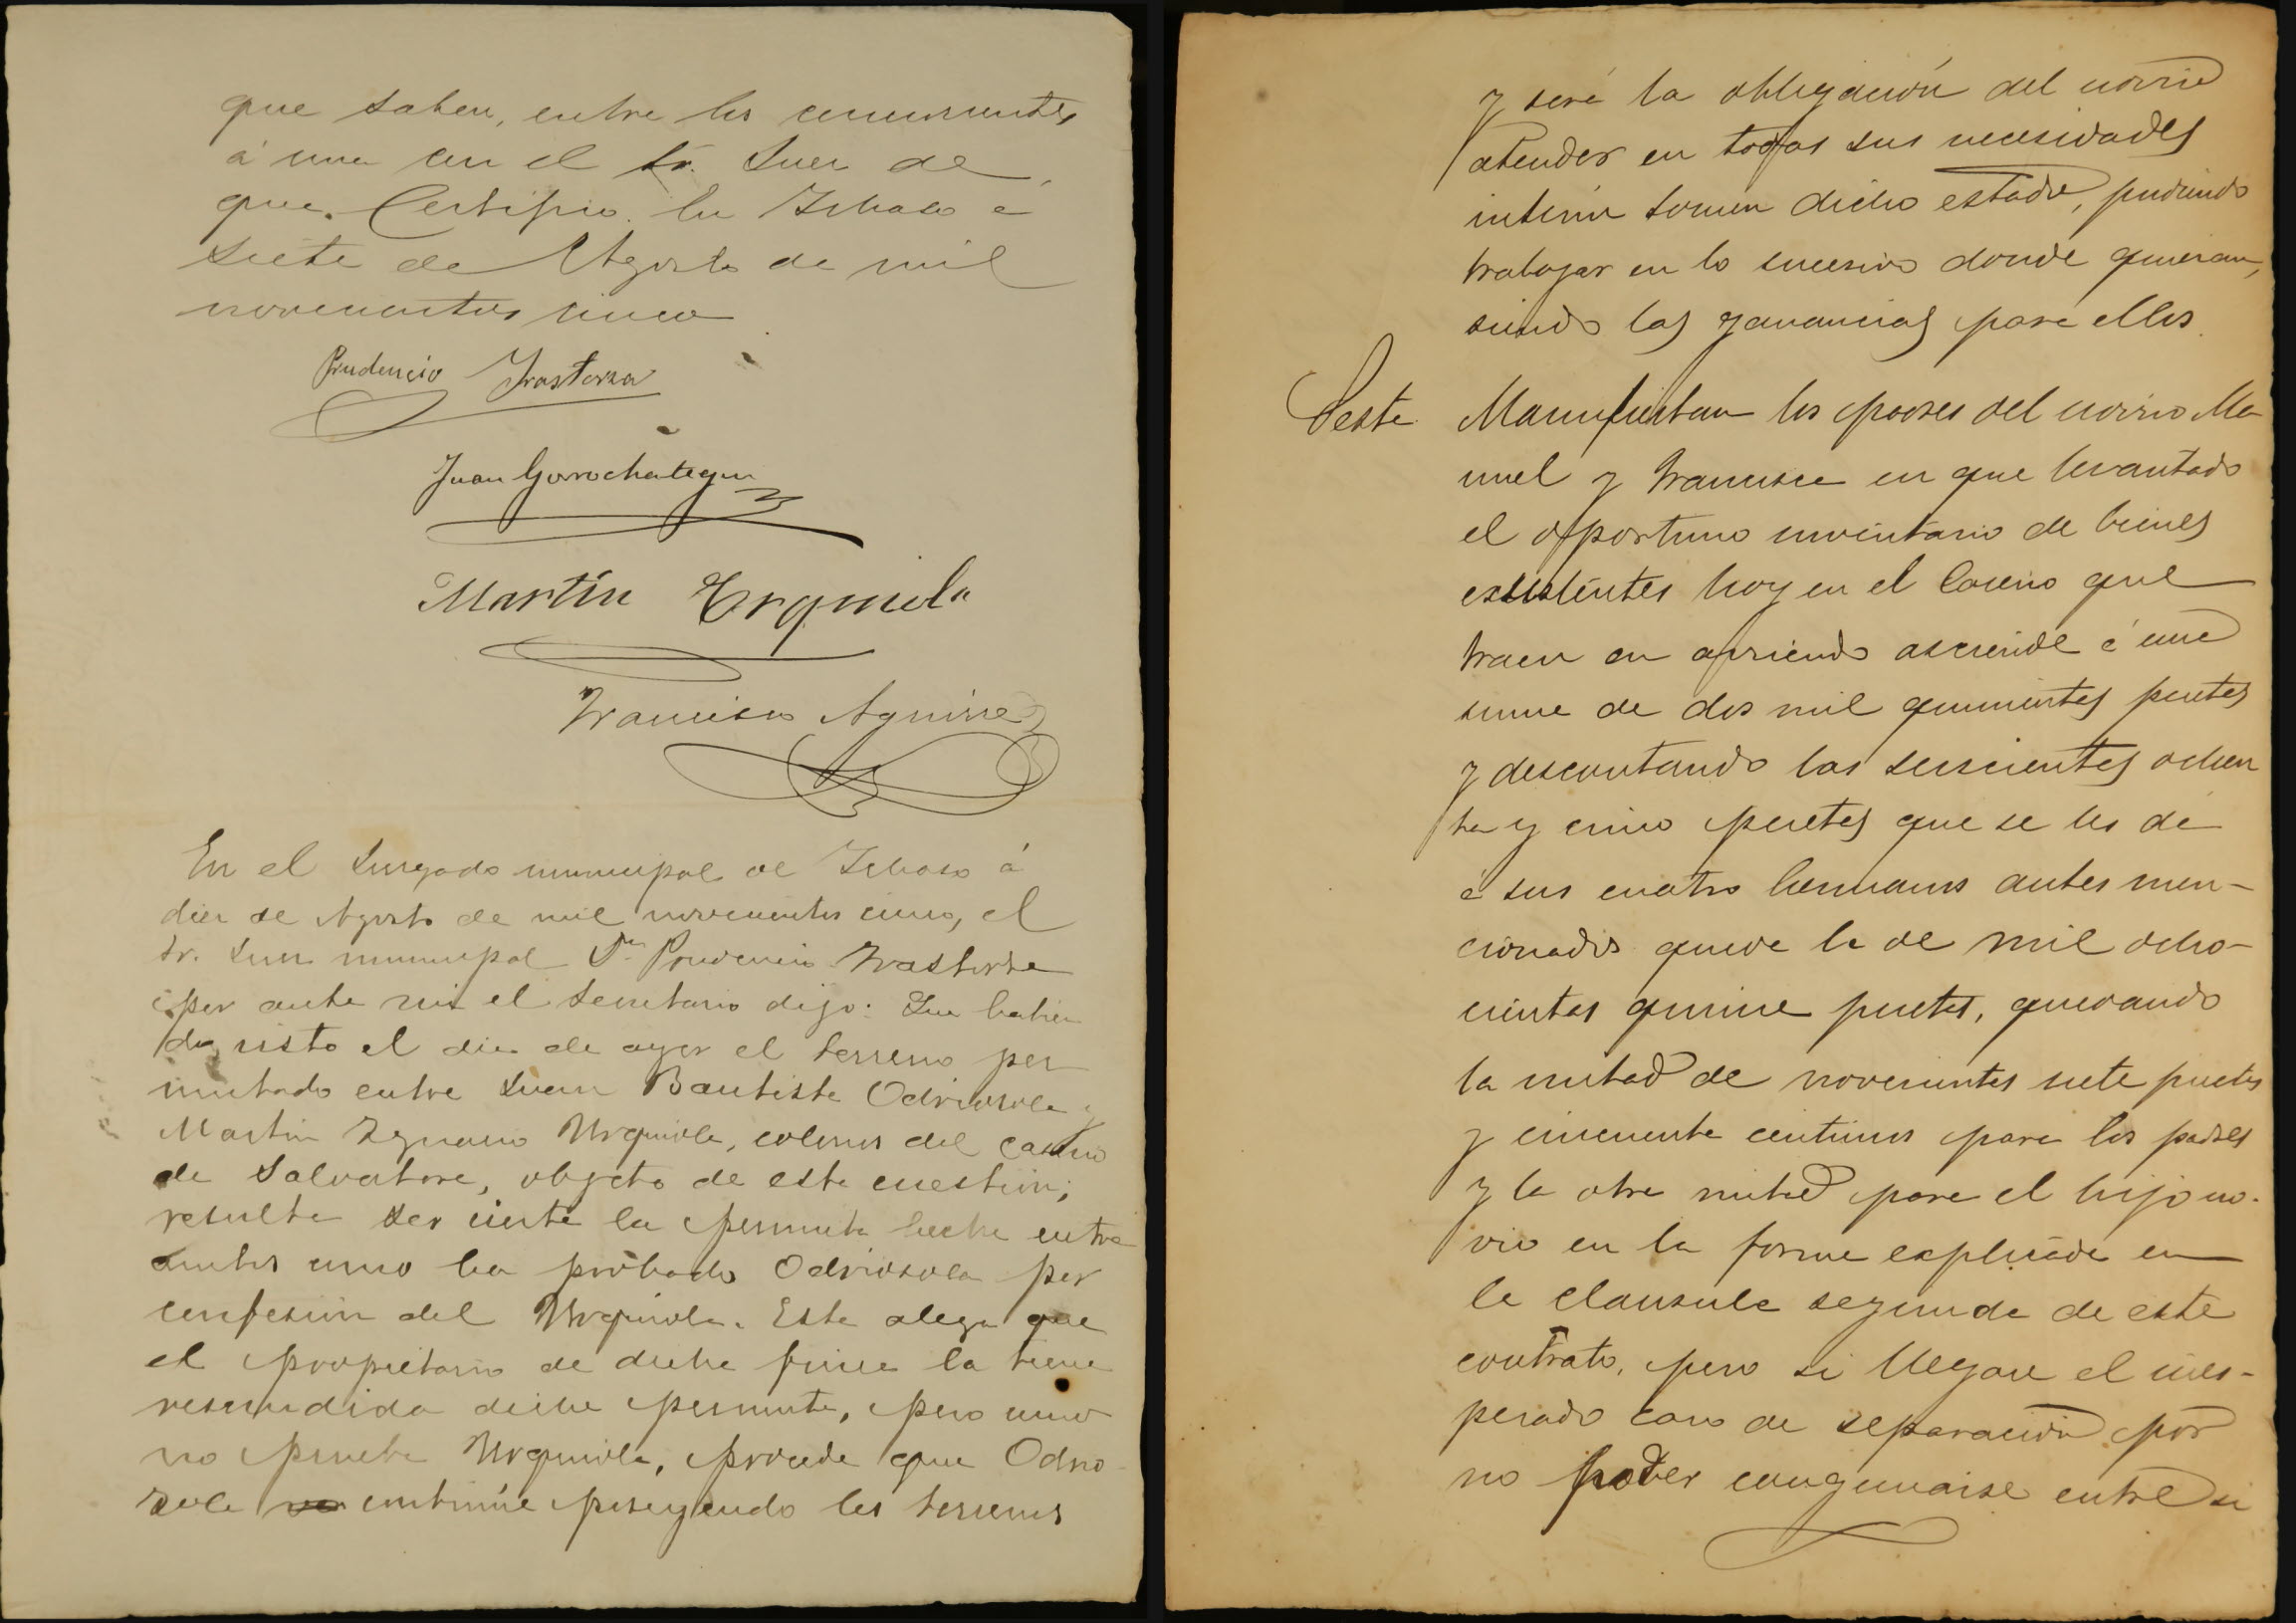 que saben, entre los concurrentes
á una con el Sr. Juez de
que Certifico. En Ichaso a
siete de Agosto de mil
novecientos cinco
Prudencio Irastorza
Juan Gorrochategui
Martín Urquiola
Francisco Aguirre
En el Juzgado municipal de Ichaso á
diez de Agosto de mil novecientos cinco, el
Sr. Juez municipal Dn Prudencio Irastorza
por ante mi el Secretario dijo: Que habien
do visto el dia de ayer el terreno per
mutado entre Juan Bautista Odriosola y
Martin Ygnacio Urquiola, colonos del caserio
de Salvatore, objeto de esta cuestión;
resulta ser cierta la permuta hecha entre
ambos como ha probado Odriosola por
confesion del Urquiola. Este alega que
el propietario de dicha finca la tiene
rescindida dicha permuta, pero como
no prueba Urquiola, procede que Odrio
sola continúe poseyendo los terrenos
y será la obligación del novio
atender en todas sus necesidades
interin tomen dicho estado, pudiendo
trabajar en lo sucesivo donde quieran,
siendo las ganancias para ellos.
Sesta Manifiestan los padres del novio Ma
nuel y Francisca en que levantado
el oportuno inventario de bienes
existentes hoy en el Caserio que
traen en arriendo asciende á una
suma de dos mil quinientas pesetas
y descontando las seiscientas ochen
ta y cinco pesetas que se les dá
á sus cuatro hermanos antes men-
cionados queda la de mil ocho-
cientas quince pesetas, quedando
la mitad de novecientas siete pesetas
y cincuenta centimos para los padres
y la otra mitad para el hijo no-
vio en la forma esplicada en
la clausula segunda de este
contrato, pero si llegare el ines-
perado caso de separación por
no poder congeniarse entre si